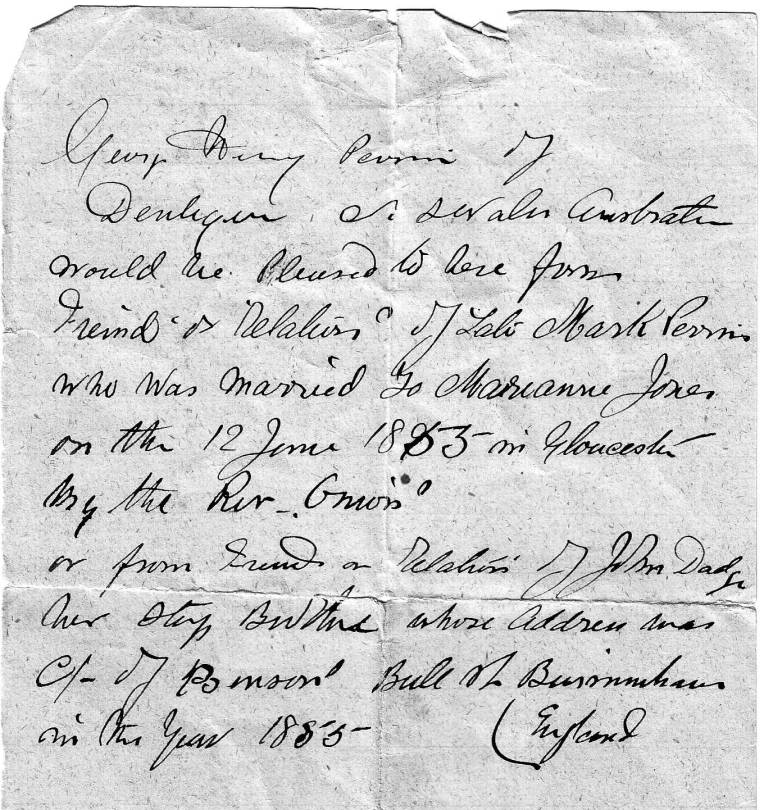 George Henry Perrin of
Deniliquin N. S Wales Australia
would be Pleased to here from
Freinds or Relations of Late Mark Perrin
who was married to Marianne Jones
on the 12 June 1855 in Gloucester
by the Rev.
or from Freinds or Relations of John Dadge
her Step Brother whose Address was
C/- of Bensons Bull St Birmingham
in the Year 1855 (England